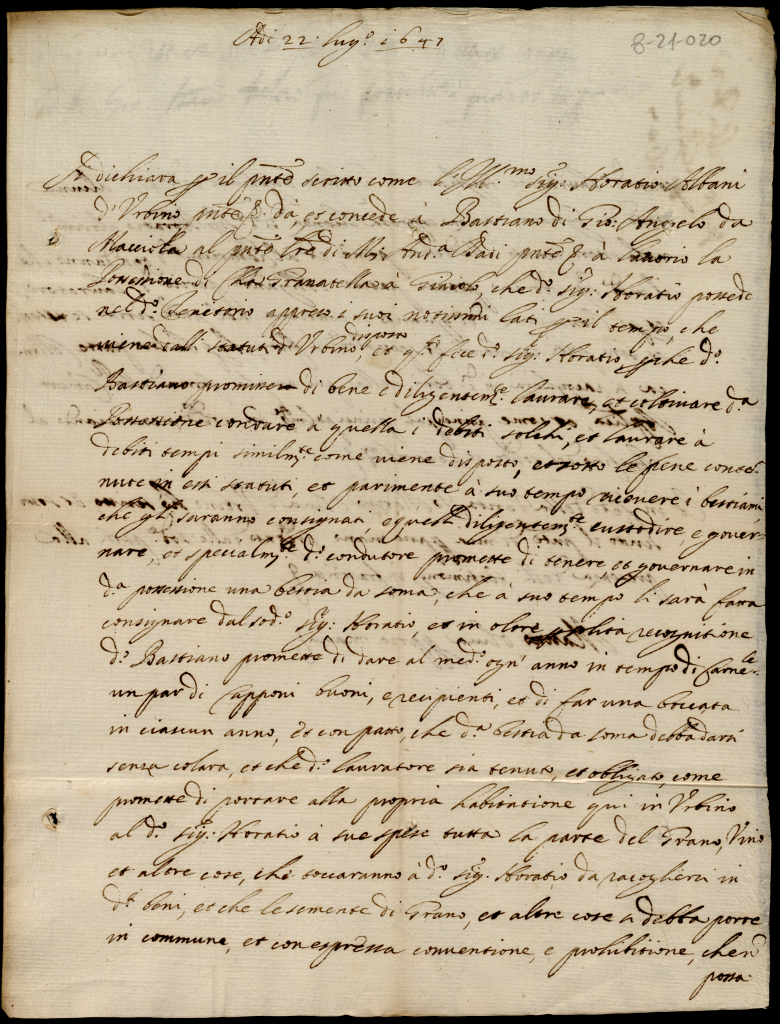 Adi 22: lug.º 1647
8-21-020
Si dichiara p il pnte scritto come l'Ill.mo Sig: Horatio Albani
d'Urbino pnte &. dà, et concede à Bastiano di Gio: Angelo da
Macciola al pnte Lre di M: And.a Badi pnte &. à lauorio la
Possessione di Granatella à, che d.º Sig: Horatio possede
nel d.º Tenitorio appresso i suoi notissimi lati p il tempo, che
uiene dalli statuti d'Urbino disposto et fece d.º Sig: Horatio pche d.º
Bastiano promisse di bene e diligentem.te laurare, et coltiuare d.a
Possessione condure à quella i debiti soleti, et laurare à
debiti tempi similm.te come uiene disposto, et sotto le pene conte-
nute in essi statuti, et parimente à suo tempo riceuere i bestiami
che gli saranno consignati, e quelli diligentem.te custodire e gouer-
nare, et specialm.te d.º condutore promette di tenere et gouernare in
d.a possessione una bestia da soma, che à suo tempo li sarà fatta
consignare dal sod.º Sig: Horatio, et in oltre p solita recognitione
d.º Bastiano promette di dare al med.º ogn' anno in tempo di Carne.le
un par di Capponi buoni, e recipienti, et di far una boccata
in ciascun anno, et con patto, che d.a bestia da soma debba darsi
senza colara, et che d.º lauratore sia tenuto, et obligato, come
promette di portare alla propria habitatione qui in Urbino
al d.º Sig: Horatio à sue spese tutta la parte del Grano, Vino
et altre cose, che toccaranno à d.º Sig: Horatio da racogliersi in
d.i beni, et che le semente di Grano, et altre cose si debba porre
in commune, et con espressa conuentione, e prohibitione, che ñ
possa